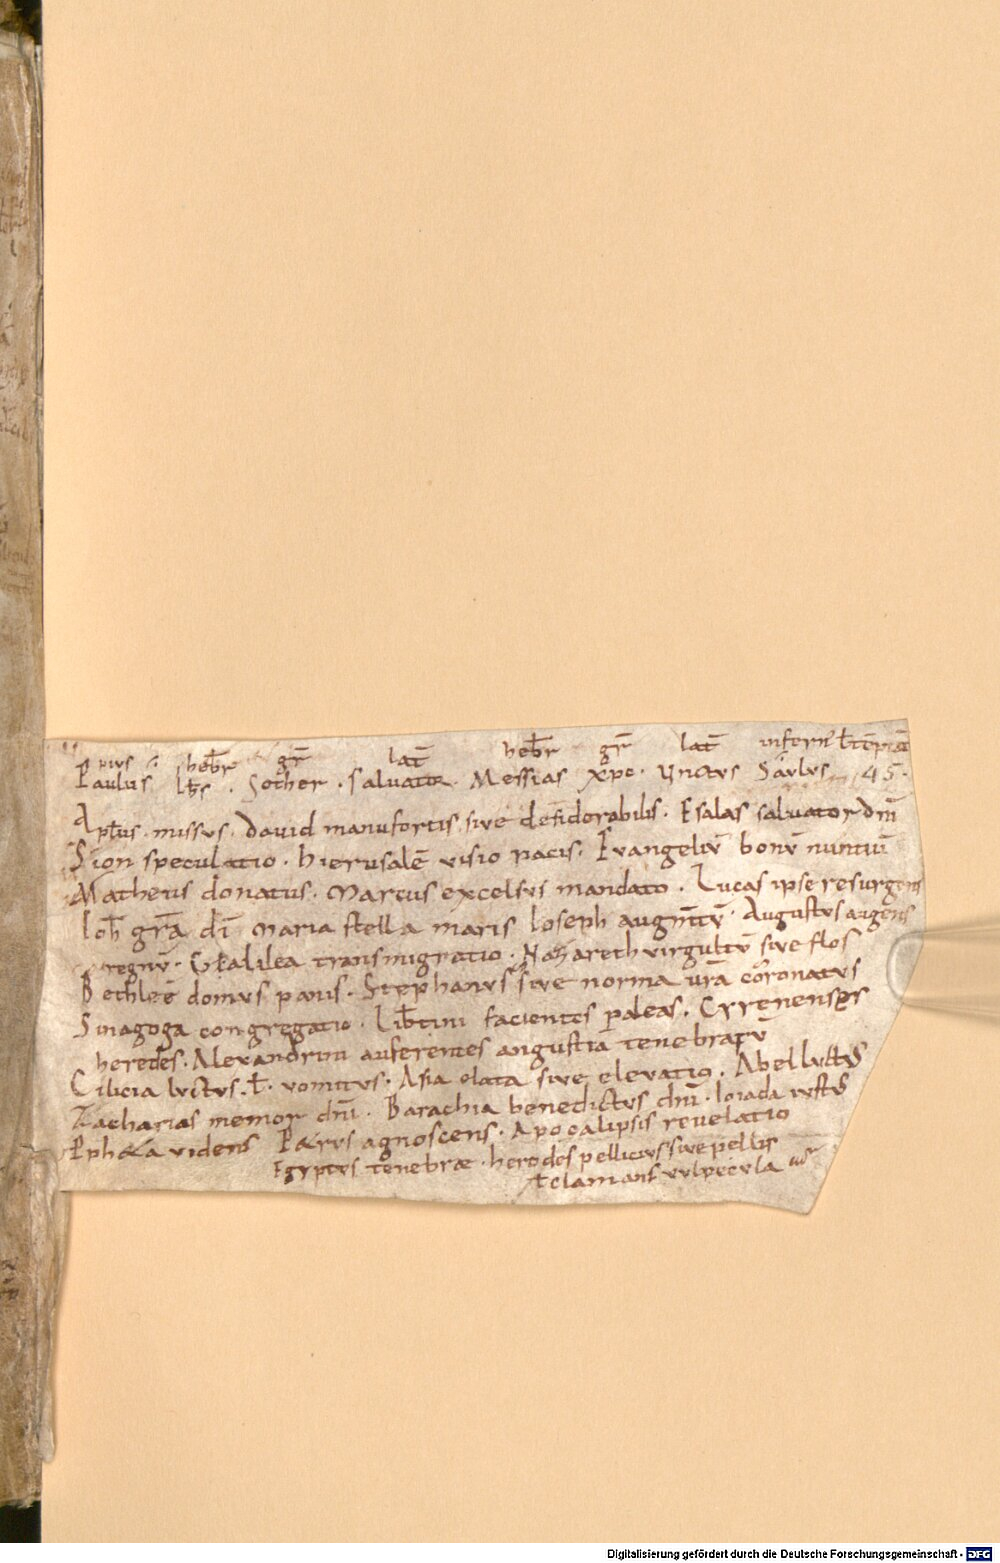 pius hebr̄ gr̄ lat̄ hebr̄ gr̄ lat̄ infern̄
Paulus Sother. salvator. Messias xp̄c. Unctus Saulus 45.
Apłus. missus. David manufortis. sive desiderabilis. Esaias salvator dn̄i
Sion speculatio. hierusalē visio pacis. Evangeliū bonū nuntiū
Matheus donatus. Marcus excelsus mandato. Lucas ipse resurgens
Ioh̄ gr̄a dī Maria stella maris Ioseph augm̄tū. Augustus augens
regnū. Galilea transmigratio. Nazareth virgultū sive flos
Bethleē domus panis. Stephanus sive norma vr̄a coronatus
Sinagoga congregatio. Lib̄tini facientes paleas. Cyrenenses
heredes. Alexandrini auferentes angustia tenebrarū
Cilicia luctus. ł. vomitus. Asia elata sive elevatio. Abel luctus
Zacharias memor dn̄i. Barachia benedictus dn̄i. Ioiada iustus
Pph&a videns P&rus agnoscens. Apocalipsis revelatio
Egyptus tenebrae. herodes pellicius sive pellis
clamans vulpecula
Digitalisierung gefördert durch die Deutsche Forschungsgemeinschaft - DFG